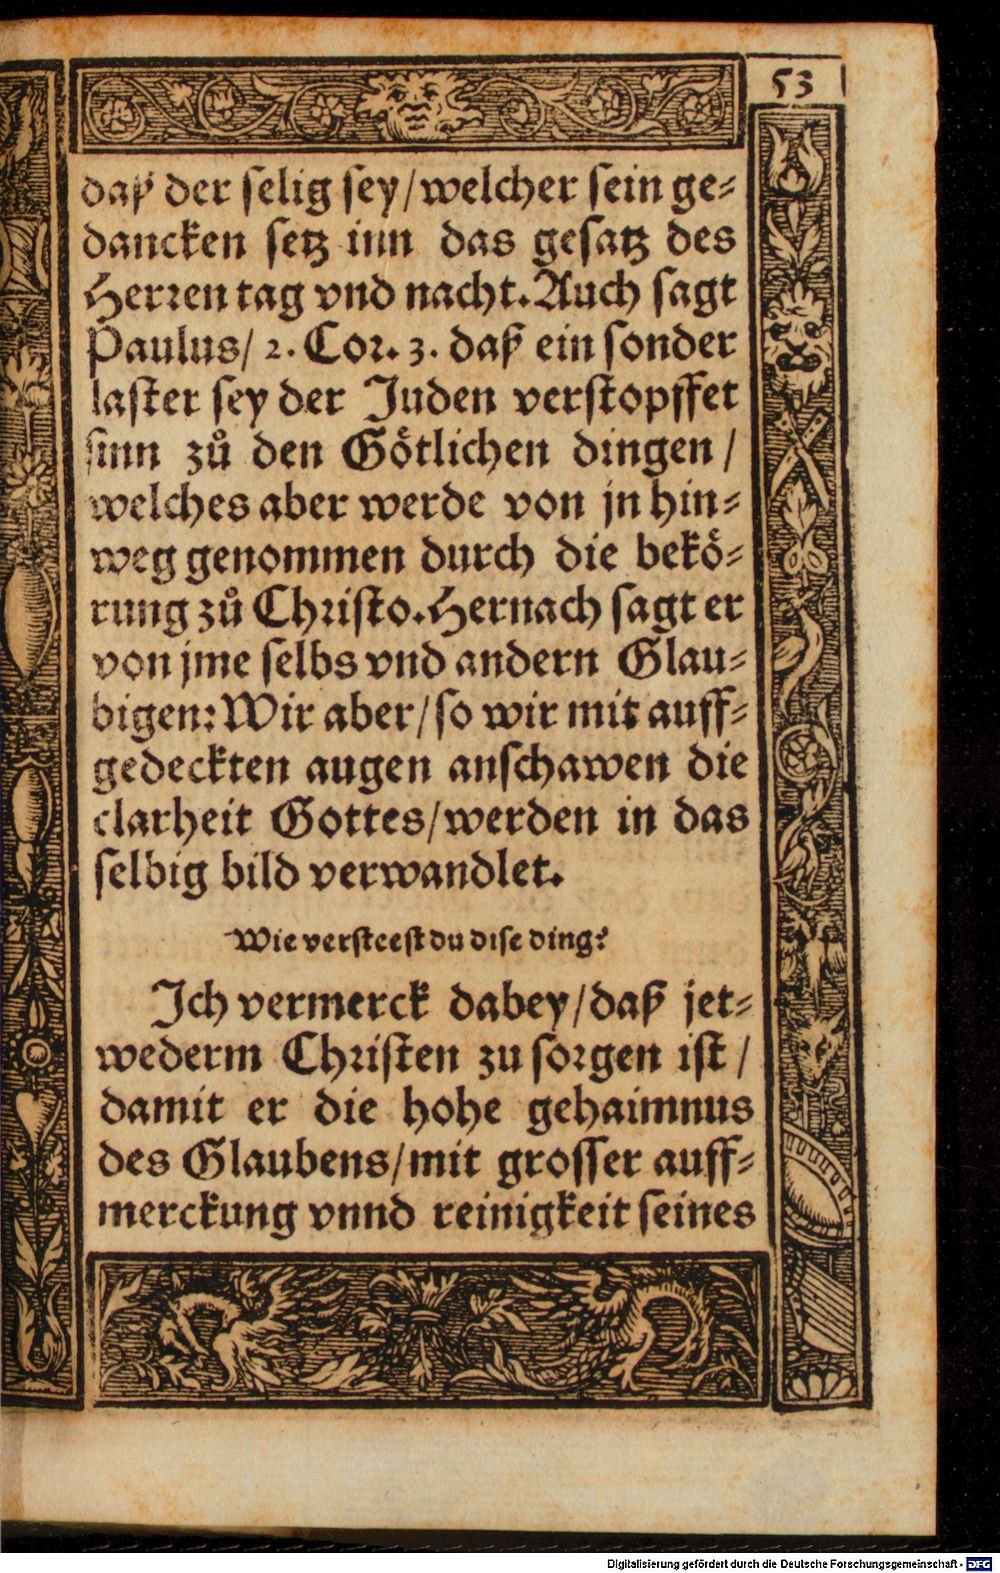 53
daß der selig sey/welcher sein ge⸗
dancken setz inn das gesatz des
Herren tag vnd nacht. Auch sagt
Paulus/ 2. Cor. 3. daß ein sonder
laster sey der Juden verstopffet
sinn zů den Götlichen dingen/
welches aber werde von jn hin⸗
weg genommen durch die bekö⸗
rung zů Christo. Hernach sagt er
von jme selbs vnd andern Glau⸗
bigen: Wir aber/so wir mit auff⸗
gedeckten augen anschawen die
clarheit Gottes/werden in das
selbig bild verwandlet.
Wie versteest du dise ding?
Ich vermerck dabey/daß jet⸗
wederm Christen zu sorgen ist/
damit er die hohe gehaimnus
des Glaubens/mit grosser auff⸗
merckung vnnd reinigkeit seines
Digitalisierung gefördert durch die Deutsche Forschungsgemeinschaft - DFG